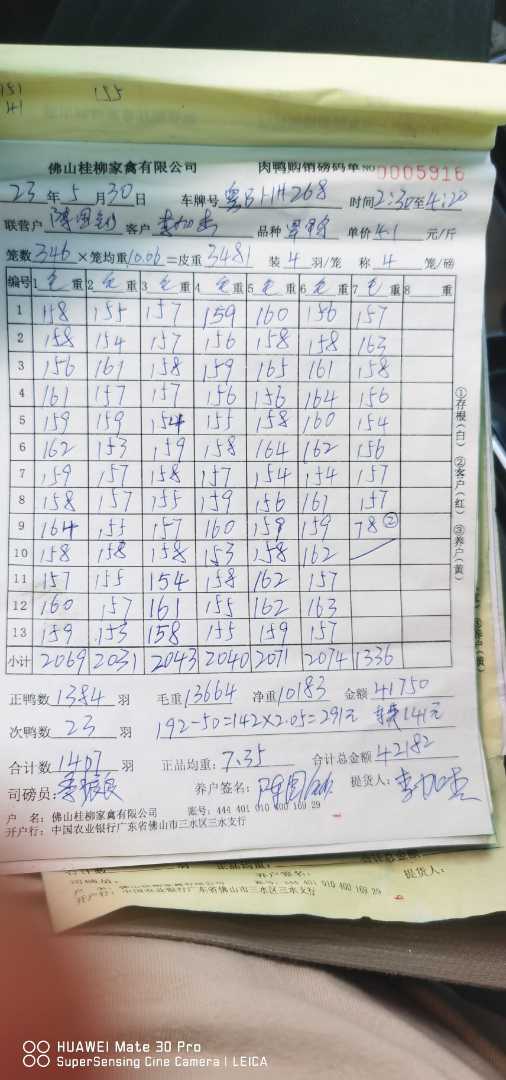 151
155
141
佛山桂柳家禽有限公司 肉鸭购销磅码单 NO 0005916
23年5月30日 车牌号 粤BHH268 时间2:30至4:20
联营户 客户 李加杰 品种 单价4.1元/斤
笼数346×笼均重10.06=皮重3481 装4羽/笼 称4笼/磅
编号 1毛重 2毛重 3毛重 4毛重 5毛重 6毛重 7毛重 8 重
1 158 155 157 159 160 156 157
2 158 154 157 156 158 158 163
3 156 161 158 159 165 161 158
4 161 157 157 156 156 164 156
5 159 159 154 155 158 160 154
6 162 153 159 158 164 162 156
7 159 157 158 157 154 154 157
8 158 157 155 159 156 161 157
9 164 155 157 160 159 159 78②
10 158 158 158 153 158 162
11 157 155 154 158 162 157
12 160 157 161 155 162 163
13 159 153 158 155 159 157
小计 2069 2031 2043 2040 2071 2074 1336
①存根(白) ②客户(红) ③养户(黄)
正鸭数1384羽 毛重13664 净重10183 金额41750
次鸭数23羽 192-50=142×2.05=291元 141元
合计数1407羽 正品均重:7.35 合计总金额42182
司磅员: 养户签名: 提货人:李加杰
户 名:佛山桂柳家禽有限公司 账号:444 401 010 400 169 29
开户行:中国农业银行广东省佛山市三水区三水支行
合计数 羽 正品均重: 合计总金额
养户签名: 提货人:
账号:444 401 010 400 169 29
开户行:中国农业银行广东省佛山市三水区三水支行
HUAWEI Mate 30 Pro
SuperSensing Cine Camera | LEICA